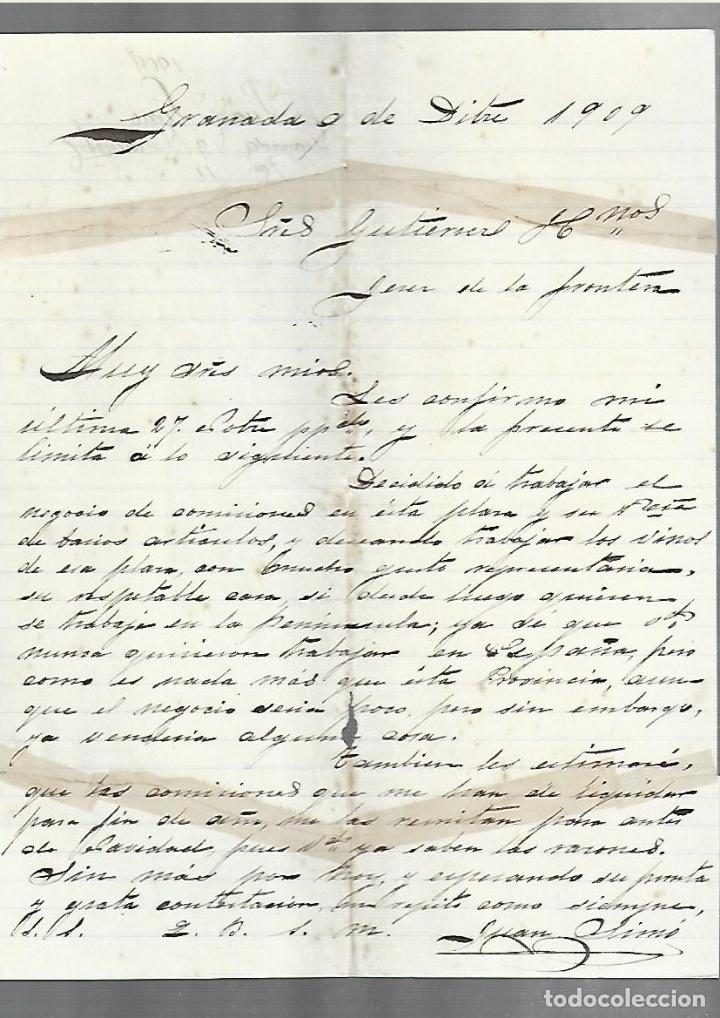 Granada 9 de Dibre 1909
Sres Gutierrez Hnos
Jerez de la frontera
Muy Sres mios.
Les confirmo mi
última 27. Nobre ppdo, y la presente se
limita á lo siguiente.
Decidido á trabajar el
negocio de comisiones en ésta plaza y su
de varios artículos, y deseando trabajar los vinos
de esa plaza, con mucho gusto representaria,
su respetable casa, si desde luego quieren
se trabaje en la Peninsula; ya sé que Vds
nunca quisieron trabajar en España, pero
como es nada más que ésta Provincia, aun-
que el negocio seria poco, pero sin embargo,
ya venderia alguna cosa.
Tambien les estimaré,
que las comisiones que me han de liquidar
para fin de año, me las remitan para antes
de Navidad, pues Vds ya saben las razones.
Sin más por hoy, y esperando su pronta
y grata contestacion, me repito como siempre,
S. S. Q. B. S. M. Juan Simó
todocoleccion
todocoleccion.net